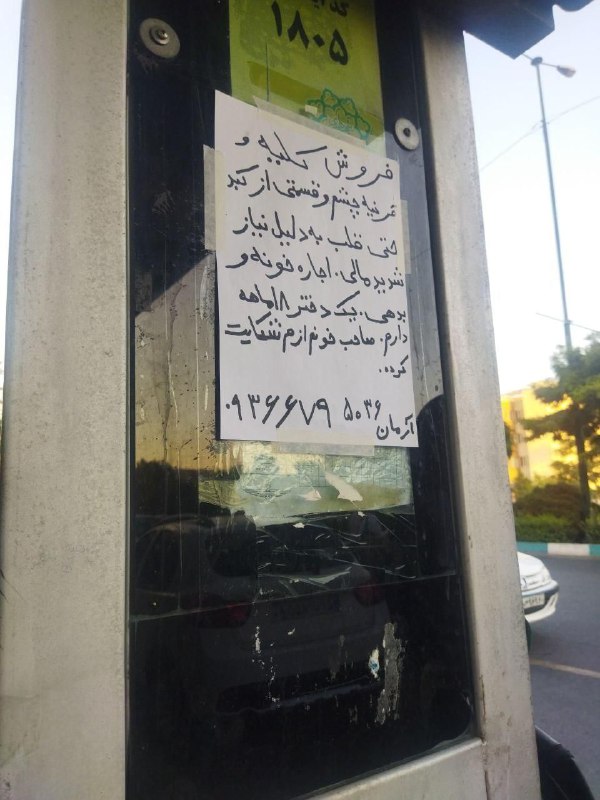 ۱۸۰۵
فروش کلیه و
قرنیه چشم و قسمتی از کبد
حتی قلب به دلیل نیاز
شدید مالی. اجاره خونه و
بدهی. یک دختر ۱۸ ماهه
دارم. صاحب خونم ازم شکایت
کرده.
۰۹۳۶۶۷۹ ۵۰۳۶ آرمان